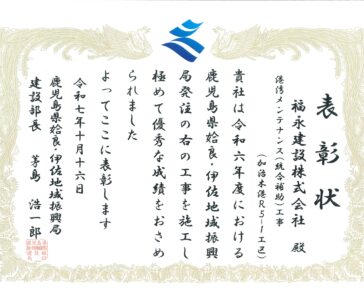 表彰状
福永建設株式会社 殿
港湾メンテナンス(統合補助)工事
(加治木港R5-1工区)
貴社は令和六年度における
鹿児島県姶良・伊佐地域振興
局発注の右の工事を施工し
極めて優秀な成績をおさめ
られました
よってここに表彰します
令和七年十月十六日
鹿児島県姶良・伊佐地域振興局
建設部長 茅島 浩一郎